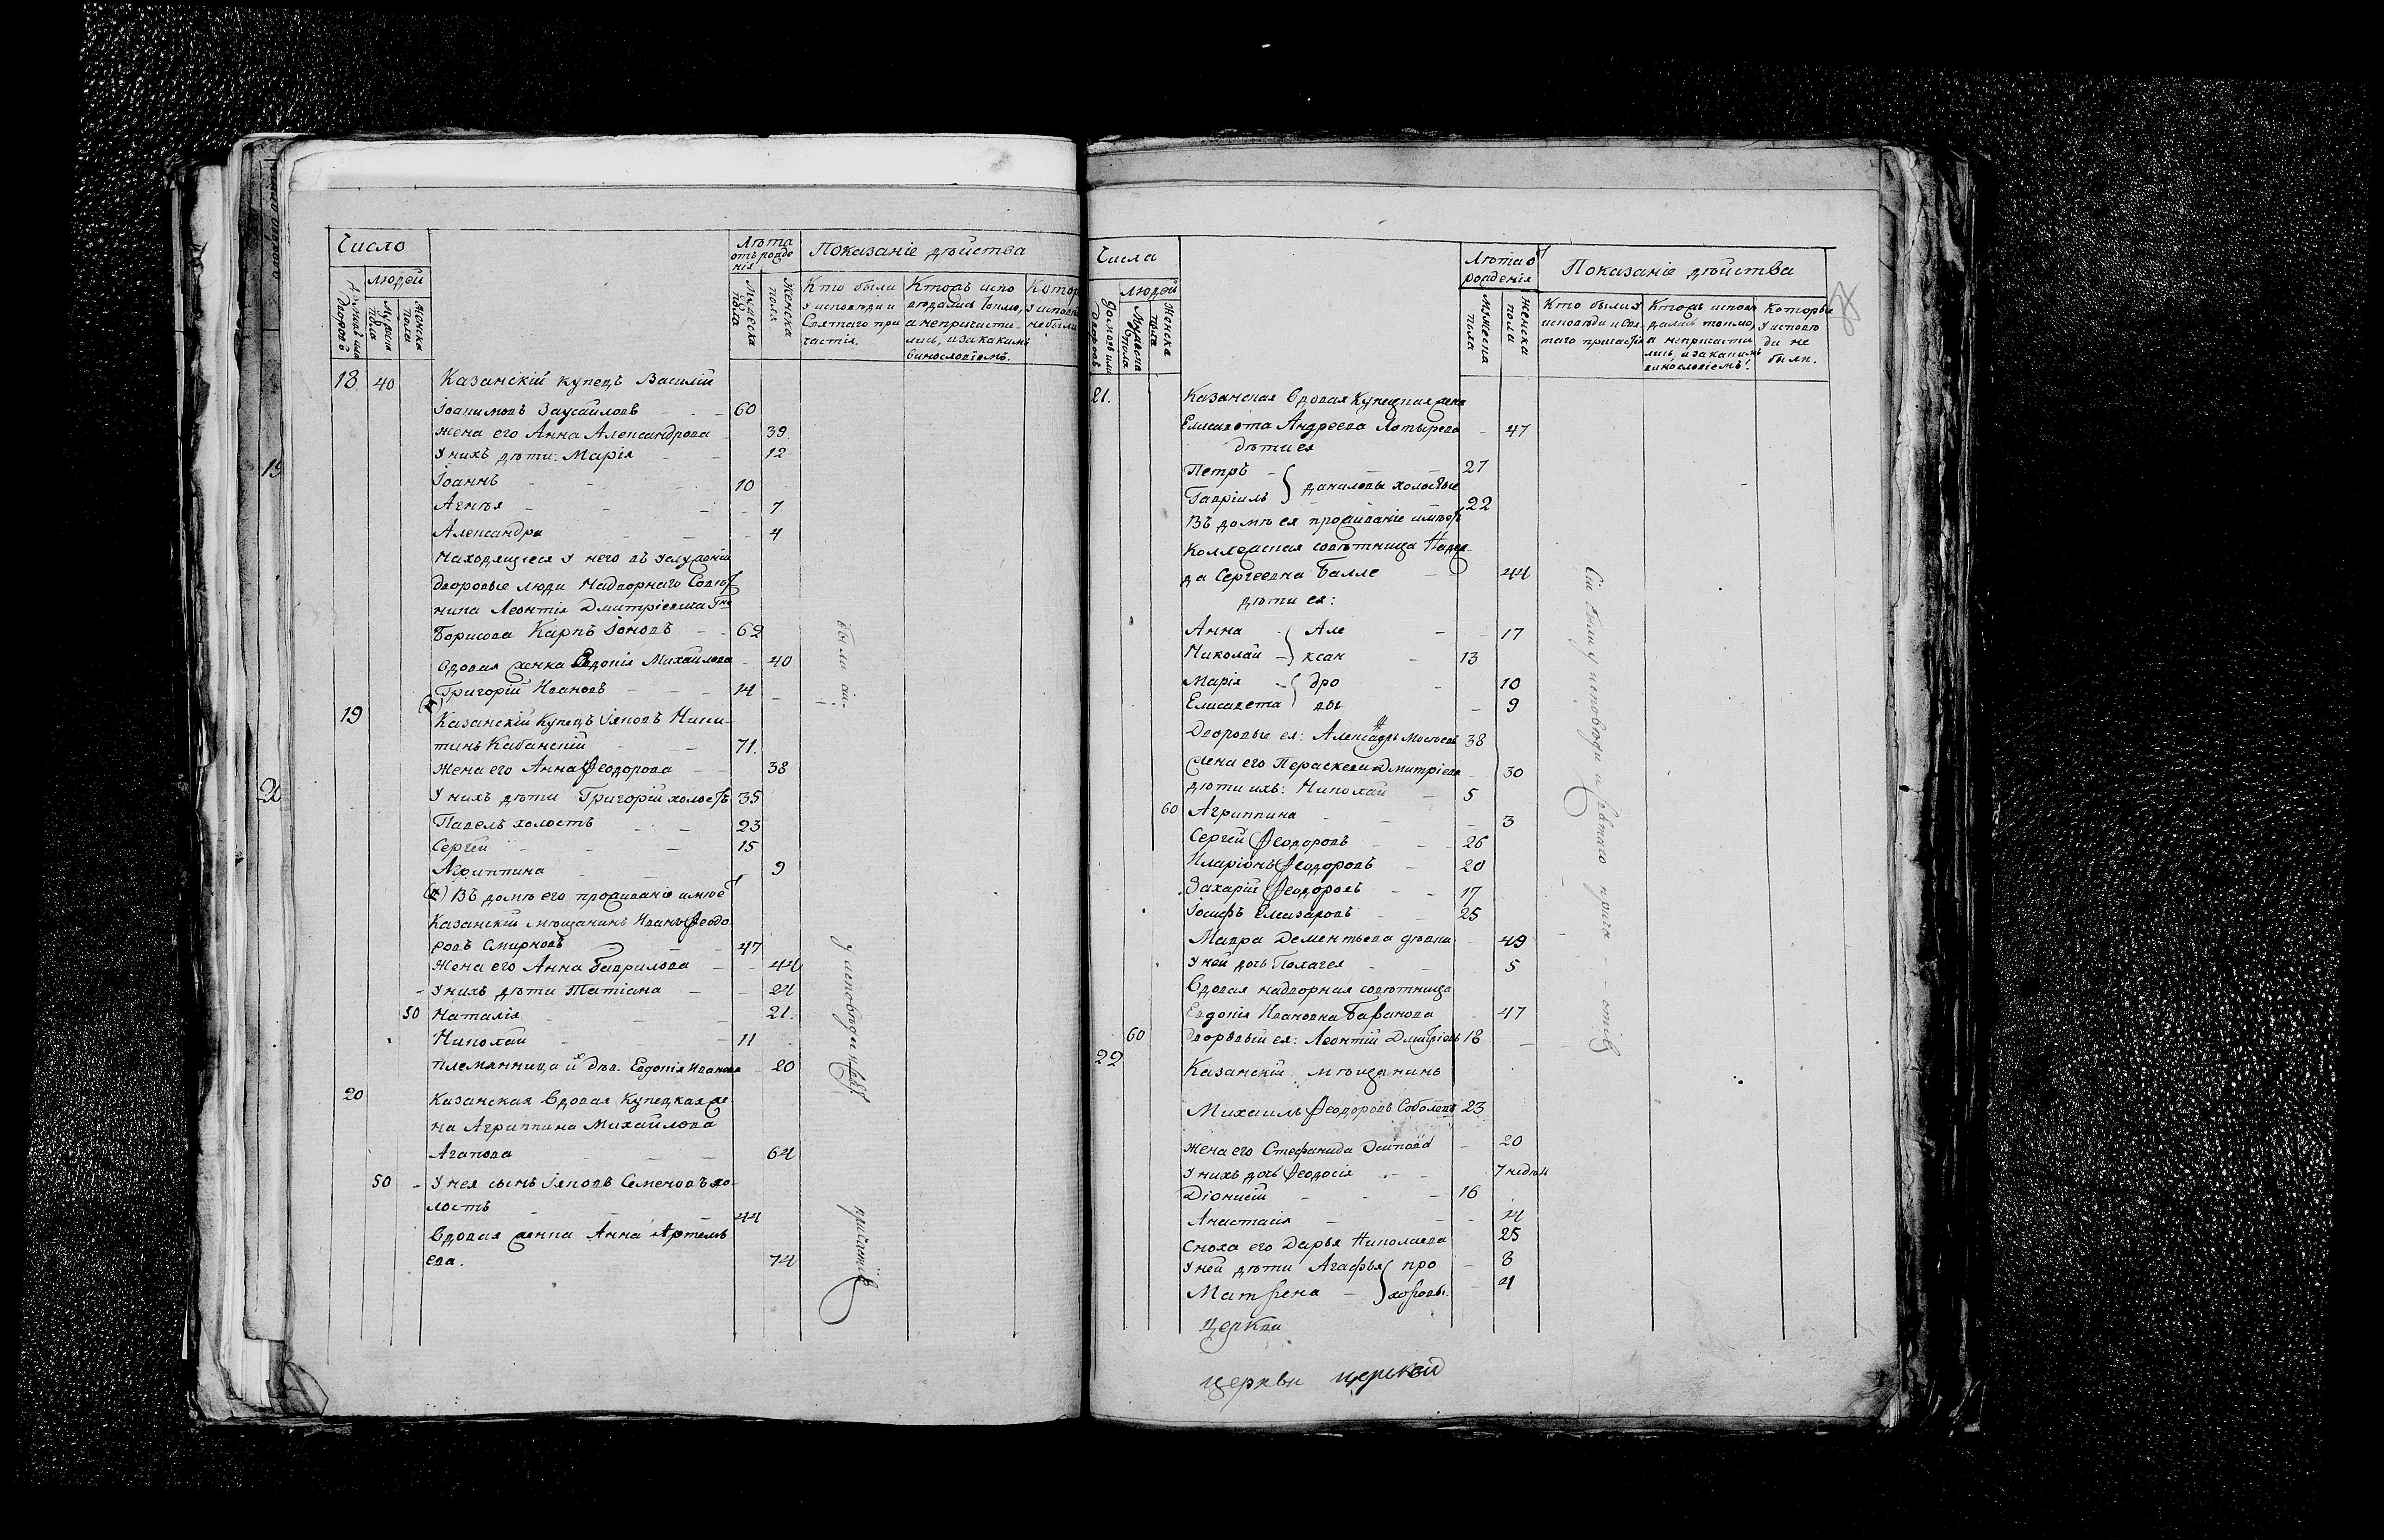 Число
людей
Домовъ или
Дворовъ
Мужеска
пола
Женска
пола
Лѣта
отъ рожде
нія
Мужеска
пола
Женска
пола
Показаніе дѣйства
Кто были
у исповѣди и
Святаго при
частія.
Кто исповѣдались токмо,
а непричасти-
лись, и за какимъ
винословіемъ.
Котор
у исповѣ
не были
18 40 Казанскій купецъ Василій
Іоакимовъ Заусайловъ 60
жена его Анна Александрова 39.
У нихъ дѣти: Марія 12
Іоаннъ 10
Агнѣя 7
Александра 4
Находящіеся у него въ услуженіи
дворовые люди Надворнаго Совѣт
ника Леонтія Дмитріевича Гна
Борисова Карпъ Іоновъ 62
вдовая женка Евдокія Михайлова 40
Григорій Ивановъ 14
19 Казанскій Купецъ Іаковъ Ники-
тинъ Кабанскій 71.
жена его Анна Ѳеодорова 38
У нихъ дѣти Григорій холостъ 35
Павелъ холостъ 23
Сергѣй 15
Агриппина 9
Въ домѣ его проживаніе имѣетъ
Казанскій мѣщанинъ Иванъ Ѳеодо
ровъ Смирновъ 47
жена его Анна Гаврилова 44
У нихъ дѣти Татіана 24
50 Наталія 21.
Николай 11
племянница и дѣв. Евдокія Иванова 20
20 Казанская Вдовая Купецкая же
на Агриппина Михайлова
Агапова 64
50 У нея сынъ Іаковъ Семеновъ хо-
лостъ 44
Вдовая женка Анна Артемь
ева. 74
были сіи
у исповѣди и свят
причастія
19
20
Числа
людей
Домовъ или
Дворовъ
Мужеска
пола
Женска
пола
Лѣта о
рожденія
Мужеска
пола
Женска
пола
Показаніе дѣйства
Кто были у
исповѣди и Свя-
таго причастія
Кто исповѣ
дались токмо,
а непричасти
лись, и за какимъ
винословіемъ.
Которые
у исповѣ
ди не
были.
21. Казанская Вдовая Купецкая жена
Елисавета Андреева Котырева 47
дѣти ея
Петръ 27
Гавріилъ } Даниловы холостые 22
Въ домѣ ея проживаніе имѣетъ
Коллежская совѣтница Надеж
да Сергеевна Балле 44
дѣти ея:
Анна } Але 17
Николай } ксан 13
Марія } дро 10
Елисавета } вы 9
Дворовые ея: Александръ Мосѣевъ 38
жена его Параскева Дмитріева 30
дѣти ихъ: Николай 5
60 Агриппина 3
Сергѣй Ѳеодоровъ 26
Иларіонъ Ѳеодоровъ 20
Захарій Ѳеодоровъ 17
Іосифъ Елизаровъ 25
Мавра Дементьева дѣвка 49
У ней дочь Пелагея 5
Вдовая надворная совѣтница
Евдокія Ивановна Баранова 47
60 дворовый ея: Леонтій Дмитріевъ 18
22 Казанскій мѣщанинъ
Михаилъ Ѳеодоровъ Соболевъ 23
жена его Стефанида Осипова 20
У нихъ дочь Ѳеодосія 7 недѣль
Діонисій 16
Анастасія 4
Сноха его Дарья Николаева 25
У ней дѣти Агафья } про 8
Матрена } хоровы. 4
Церкви
церкви церквей
Сіи были у исповѣди и Святаго прича-
стія